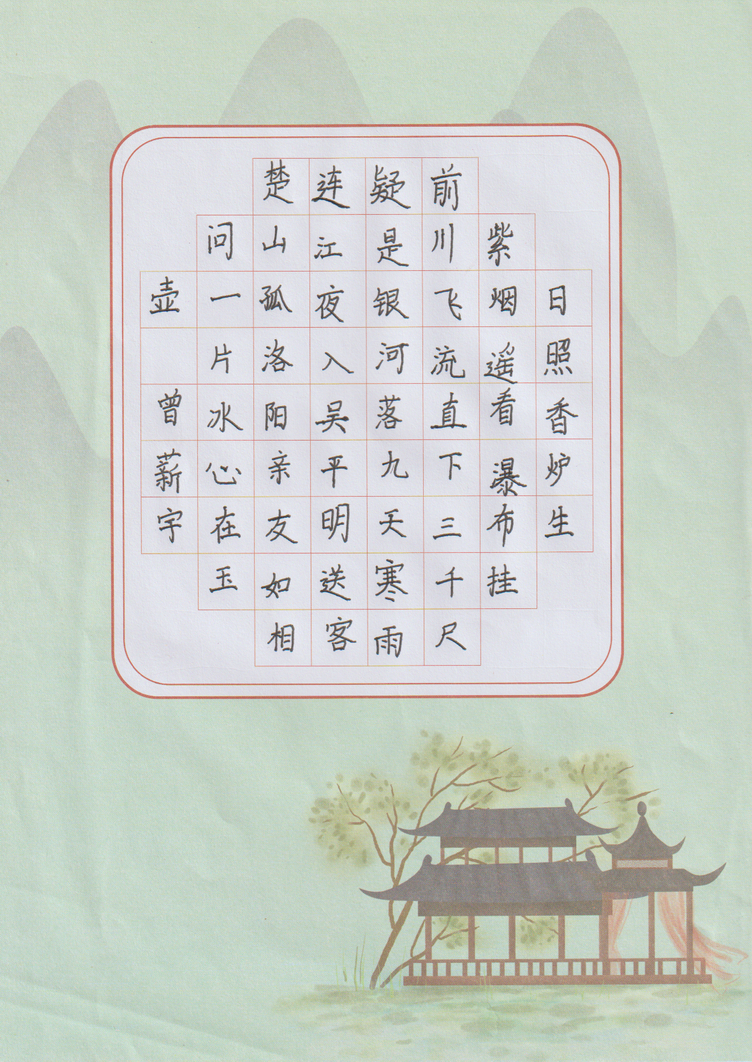 日照香炉生
紫烟遥看瀑布挂
前川飞流直下三千尺
疑是银河落九天寒雨
连江夜入吴平明送客
楚山孤洛阳亲友如相
问一片冰心在玉
壶 曾薪宇